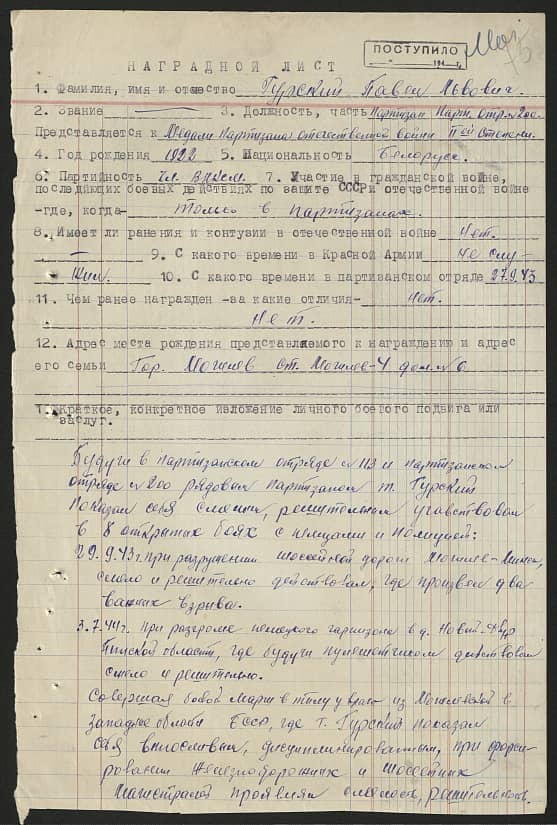 ПОСТУПИЛО
194 г.
НАГРАДНОЙ ЛИСТ
1. Фамилия, имя и отчество Гурский Павел Львович.
2. Звание — 3. Должность, часть Партизан Парт. отр. № 200.
Представляется к Медали Партизана отечественной войны II ой степени.
4. Год рождения 1922 5. Национальность Белорусс.
6. Партийность чл. ВЛКСМ. 7. Участие в гражданской войне,
последйющих боевых действиях по защите СССРи отечественной войне
-где, когда- только в партизанах.
8. Имеет ли ранения и контузии в отечественной войне Нет.
— 9. С какого времени в Красной Армии не слу-
жил. 10. С какого времени в партизанском отряде 27.9.43
11. Чем ранее награжден -за какие отличия- нет.
Нет.
12. Адрес места рождения представляемого к награждению и адрес
его семьи Гор. Могилев ст. Могилев-4 дом № 6
1. Краткое, конкретное изложение личного боегого подвига или
заслуг.
Будучи в партизанском отряде № 113 и партизанском
отряде № 200 рядовым партизаном т. Гурский
показал себя смелым, решительным участвовал
в 8 открытых боях с немцами и полицией:
29.9.43 г. при разрушении шоссейной дороги Могилев-Минск,
смело и решительно действовал, где произвел два
важных взрыва.
3.7.44 г. при разгроме немецкого гарнизона в д. Новый-Двор
Пинской области, где будучи пулеметчиком действовал
смело и решительно.
Совершая боевой марш в тылу у врага из Могилевской в
Западные области БССР, где т. Гурский показал
себя выносливым, дисциплинированным, при форси-
ровании железнодорожных и шоссейных
магистралей проявлял смелость, решительность.